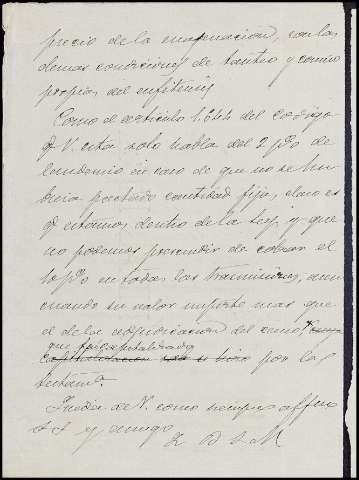 precio de la enagenación, con las
demas condiciones de tanteo y comiso
propias del enfiteusis
Como el articulo 1.644 del codigo
q V. cita solo habla del 2 p%o de
laudemio en caso de que no se hu-
biera pactado cantidad fija, claro es
q estamos dentro de la ley, y que
no podemos prescindir de cobrar el
10 p%o en todas las trasmisiones, aun
cuando su valor importe mas que
el de la adjudicacion del censo
que fue capitalizado
por los
Queda de V. como siempre affmo
S.S. y amigo
Q B S M